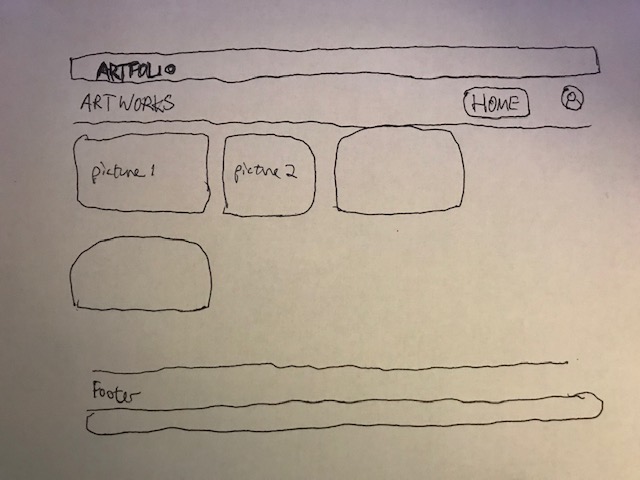 ARTFOLIO
ART WORKS
HOME
picture 1
picture 2
Footer